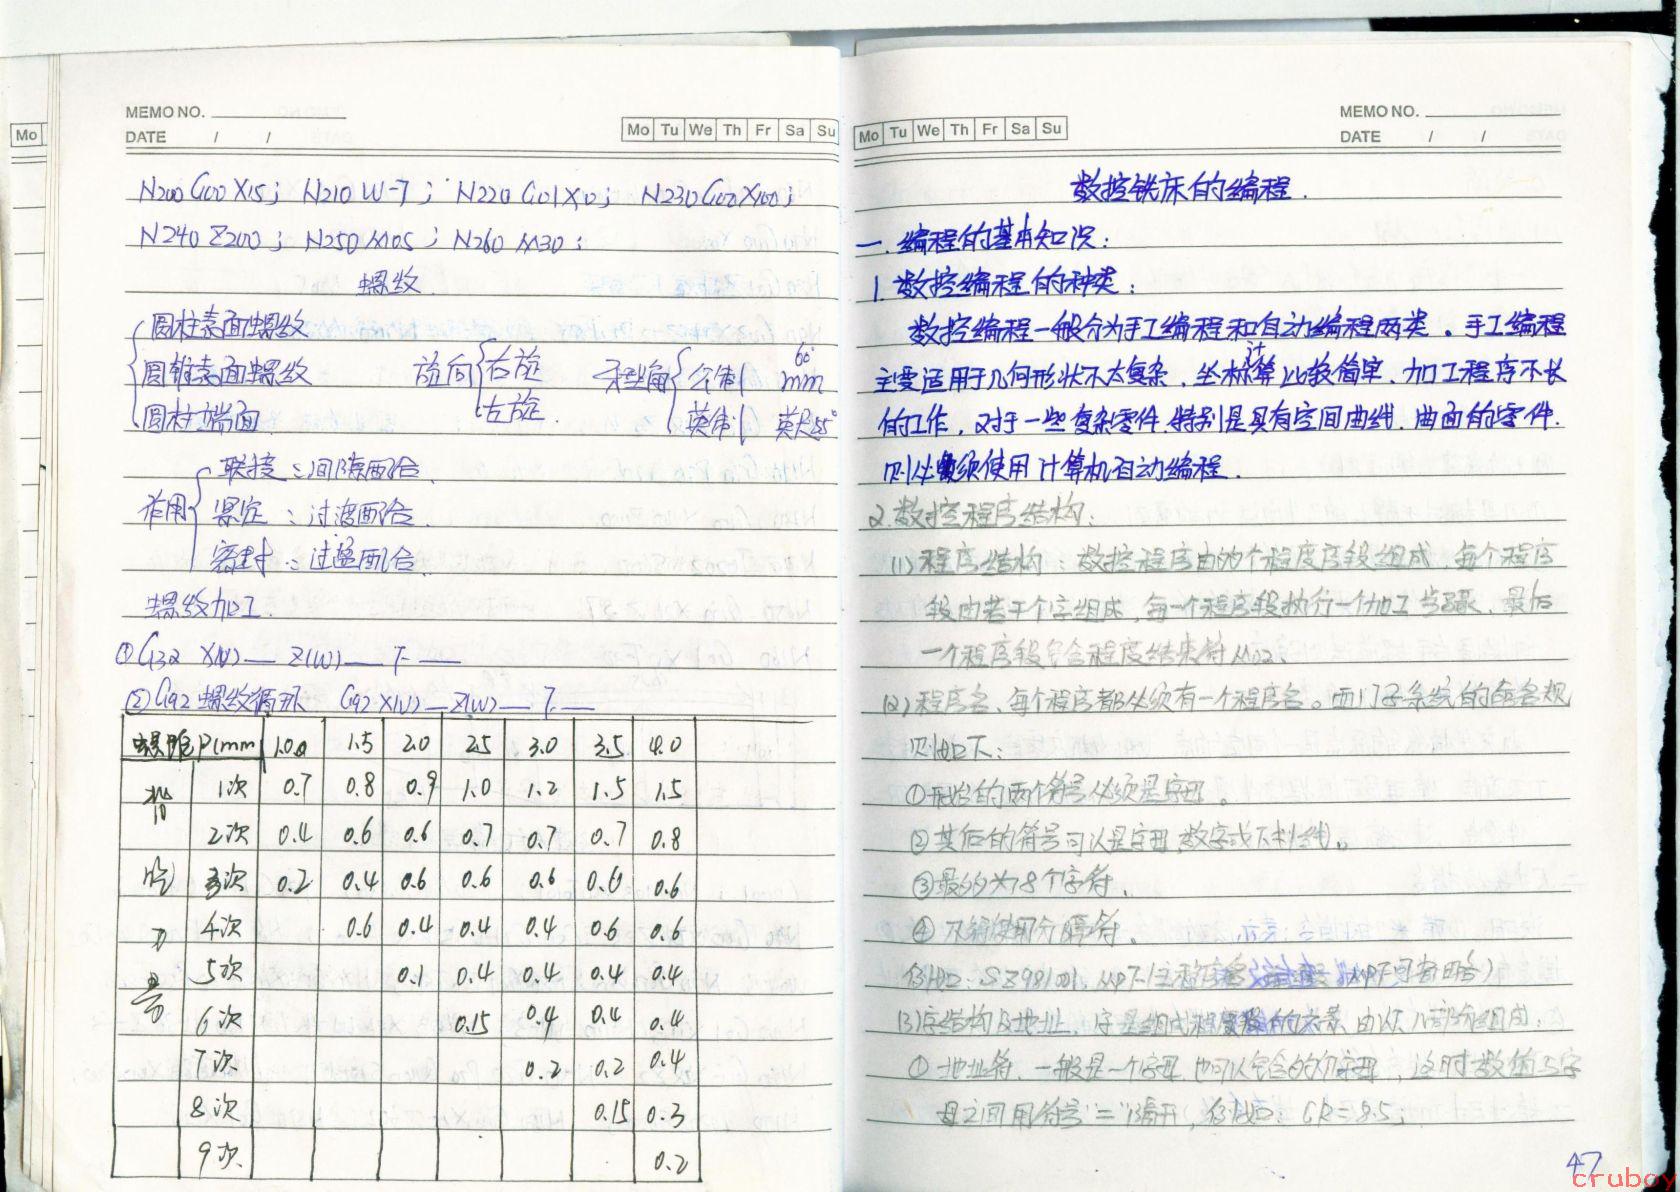 MEMO NO.
DATE / /
Mo Tu We Th Fr Sa Su
Mo
N200 G00 X15; N210 W-7; N220 G01 X10; N230 G00 X100;
N240 Z200; N250 M05; N260 M30;
螺纹
圆柱表面螺纹
圆锥表面螺纹
圆柱端面
旋向 右旋
左旋
牙型角 公制 60° mm
英制 英尺 55°
作用 联接:间隙配合.
紧定:过渡配合.
密封:过盈配合.
螺纹加工.
① G32 X(U)__ Z(W)__ F__
② G92 螺纹循环 G92 X(U)__ Z(W)__ F__
螺距P(mm) 1.0 1.5 2.0 2.5 3.0 3.5 4.0
1次 0.7 0.8 0.9 1.0 1.2 1.5 1.5
2次 0.4 0.6 0.6 0.7 0.7 0.7 0.8
3次 0.2 0.4 0.6 0.6 0.6 0.6 0.6
4次 0.6 0.4 0.4 0.4 0.6 0.6
5次 0.1 0.4 0.4 0.4 0.4
6次 0.15 0.4 0.4 0.4
7次 0.2 0.2 0.4
8次 0.15 0.3
9次 0.2
Mo Tu We Th Fr Sa Su
MEMO NO.
DATE / /
数控铣床的编程.
一.编程的基本知识:
1.数控编程的种类:
数控编程一般分为手工编程和自动编程两类。手工编程
主要适用于几何形状不太复杂.坐标计算比较简单.加工程序不长
的工作.对于一些复杂零件.特别是具有空间曲线.曲面的零件.
则必须使用计算机自动编程.
2.数控程序结构:
(1)程序结构:数控程序由 个程序段组成.每个程序
段由若干个字组成,每一个程序段执行一个加工步骤.最后
一个程序段包含程序结束符M02.
(2)程序名.每个程序都必须有一个程序名。西门子系统的命名规
则如下:
①开始的两个符号必须是字母。
②其后的符号可以是字母,数字或下划线。
③最多为8个字符.
④不能使用分隔符。
例如: SZ991001, MPF(主程序名 MPF可省略)
(3)字结构及地址.字是组成程序段的元素.由以几部分组成:
①地址符.一般是一个字母.也可以包含多个字母.这时数值与字
母之间用符号"="隔开,例如: CR=8.5;
47
cruboy